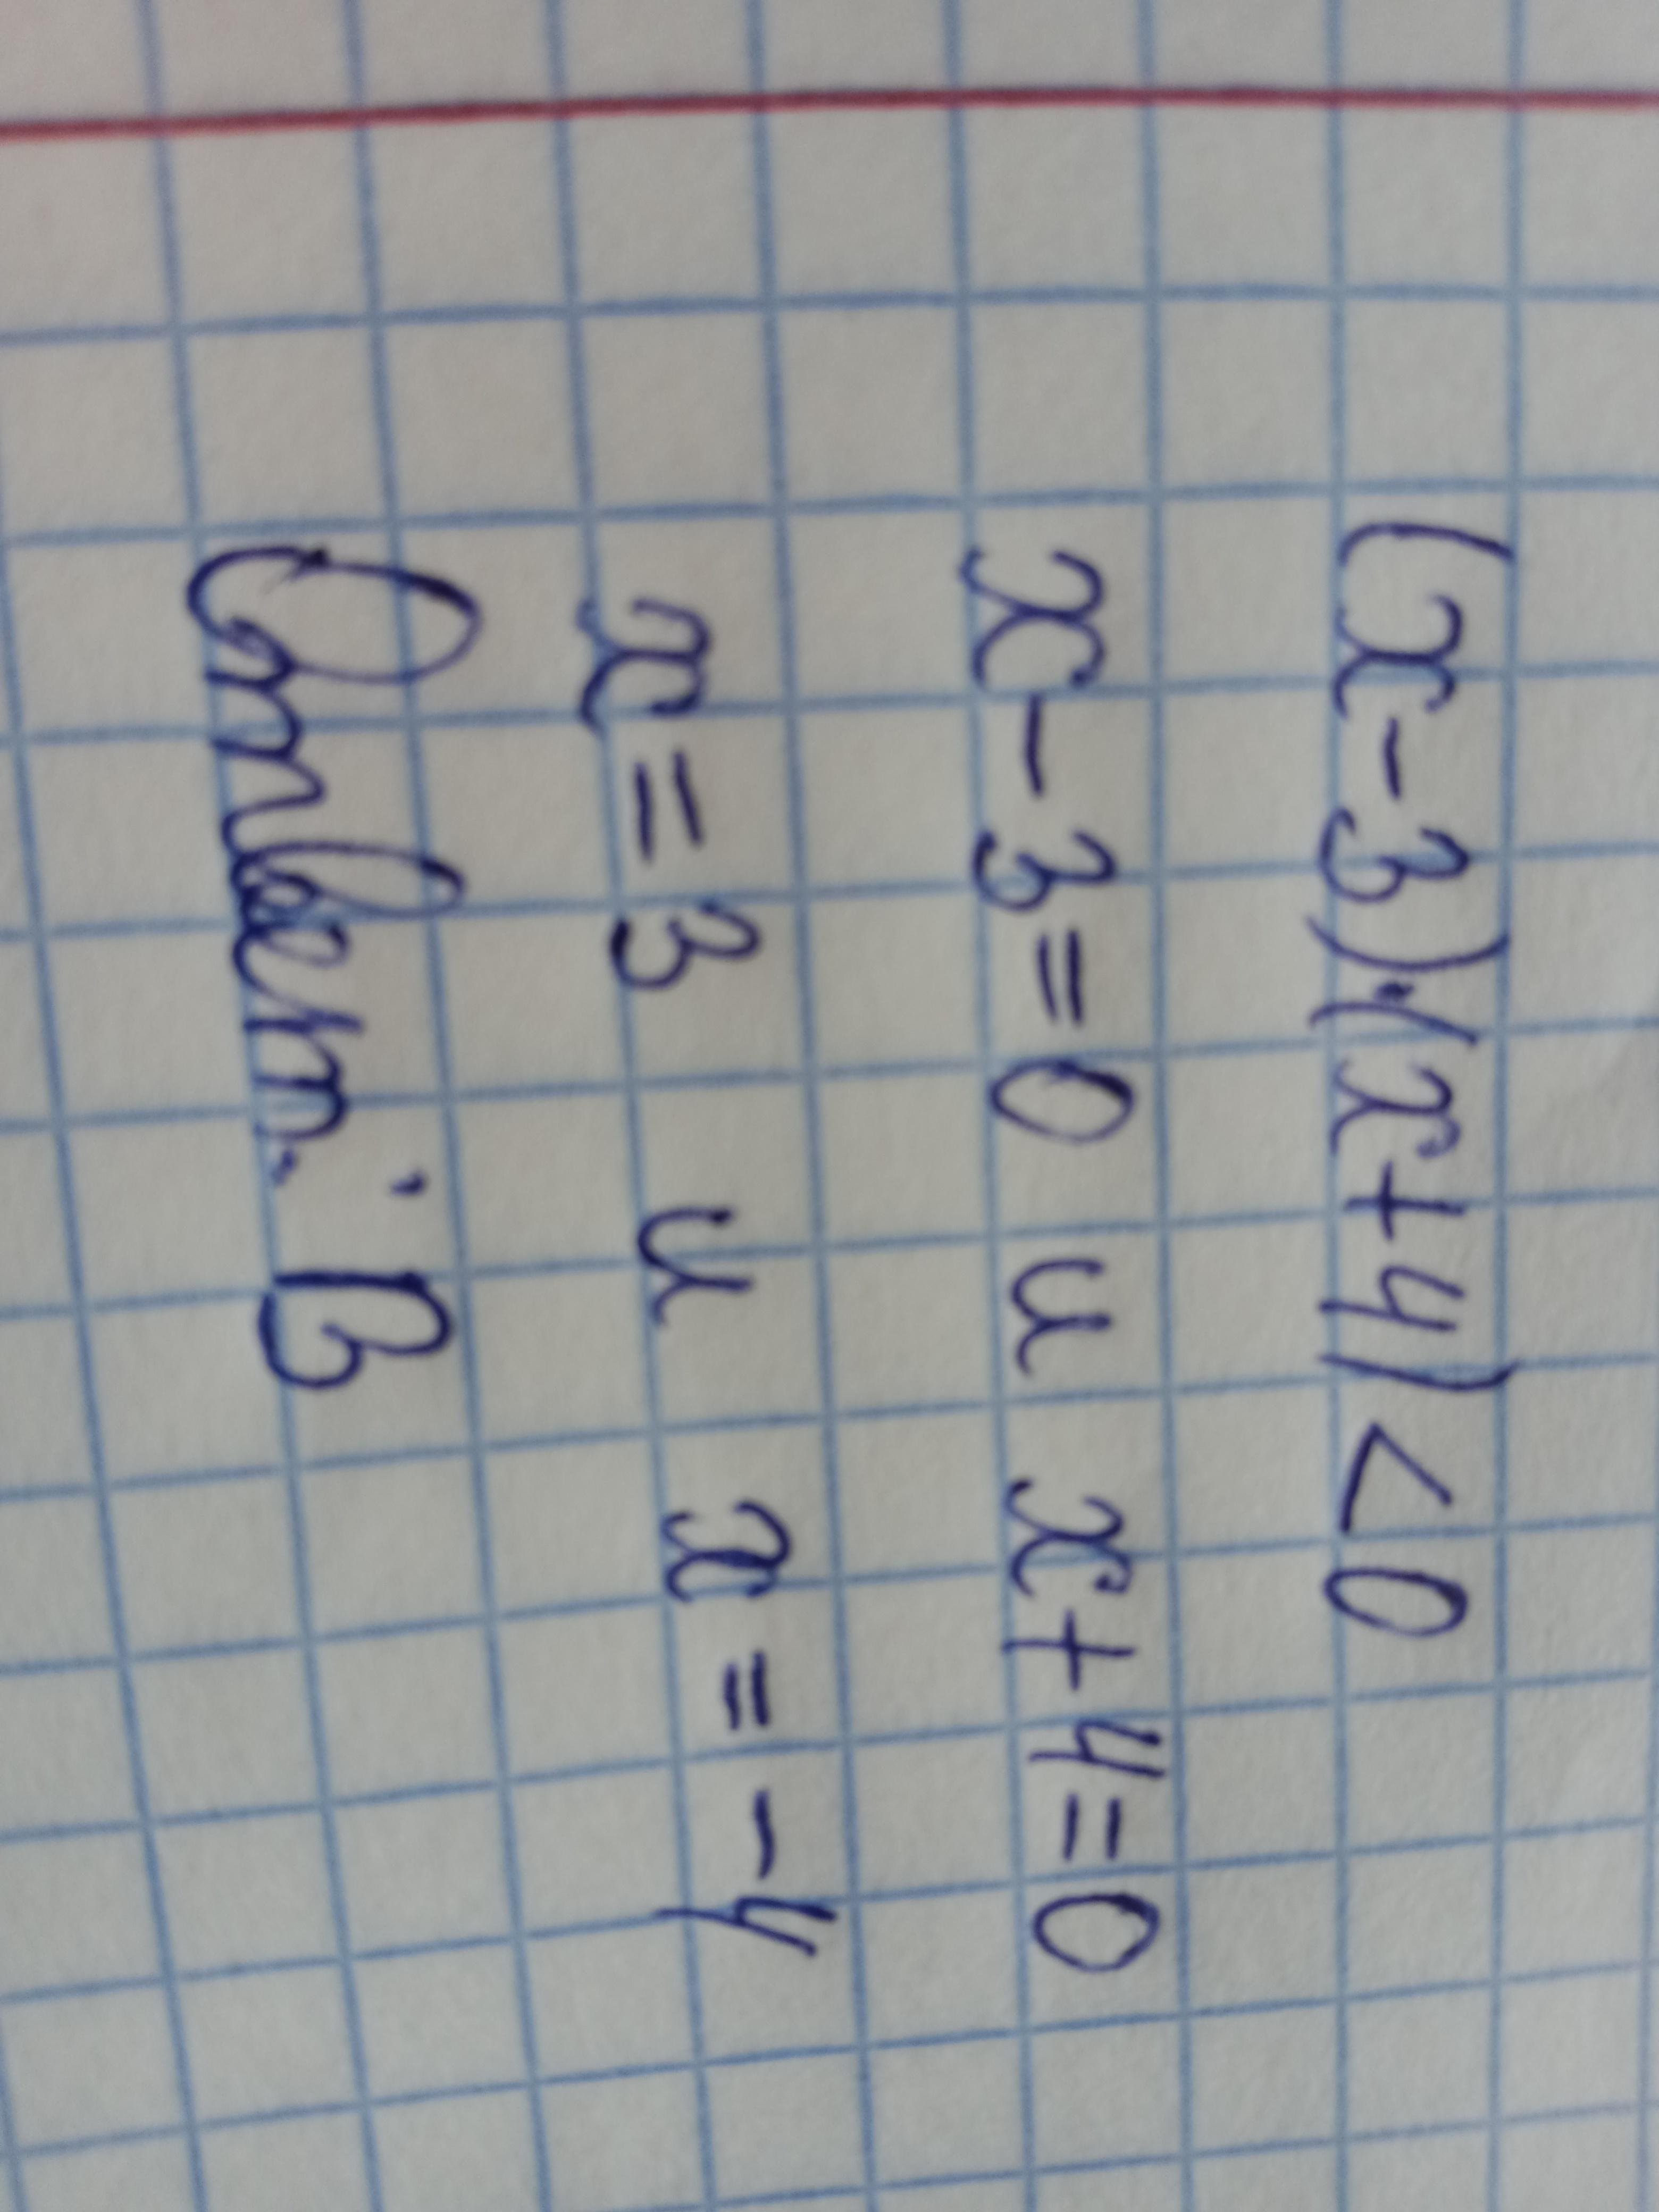 (x-3)·(x+4)<0
x-3=0 и x+4=0
x=3 и x=-4
Ответ: В